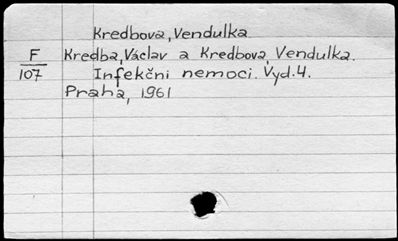 Kredbova, Vendulka
F Kredba, Václav a Kredbova, Vendulka.
107 Infekční nemoci. Vyd. 4.
Praha, 1961